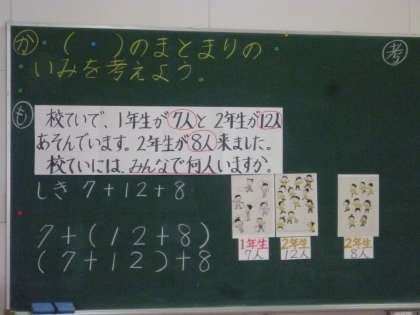 か ( )のまとまりの
いみを考えよう。
考
も
校ていで、1年生が7人と2年生が12人
あそんでいます。2年生が8人来ました。
校ていには、みんなで何人いますか。
しき 7+12+8
7+(12+8)
(7+12)+8
1年生
7人
2年生
12人
2年生
8人